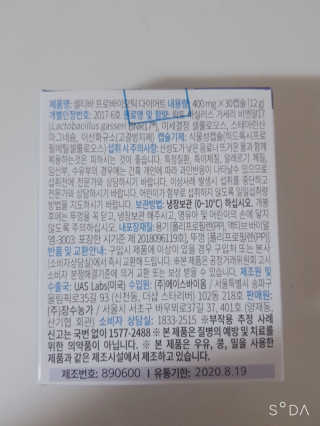 제품명: 셀티바 프로바이오틱 다이어트 내용량: 400 mg × 30캡슐 (12 g)
개별인정번호: 2017-6호 원료명 및 함량: 락토바실러스 가세리 비엔알17
(Lactobacillus gasseri BNR17), 미세결정 셀룰로오스, 스테아린산
마그네슘, 이산화규소(고결방지제) 캡슐기제: 식물성캡슐(히드록시프로
필메틸셀룰로오스) 섭취 시 주의사항: 산성도가 낮은 음료나 뜨거운 물과 함께
복용하는것은 피하시는 것이 좋습니다. 특정질환, 특이체질, 알레르기 체질,
임산부, 수유부의 경우에는 간혹 개인에 따라 과민반응이 나타날수 있으므로
섭취전에 전문가와 상담하시기 바랍니다. 이상사례 발생시 섭취를 중단하고
전문가와 상담하시기 바랍니다. 어린이가 함부로 섭취하지 않도록 일일섭취량
방법을 지도하시기 바랍니다. 보관방법: 냉장보관 (0~10℃) 하십시오. 개봉
후에는 뚜껑을 꼭 닫고, 냉장보관 해주시고, 영유아 및 어린이의 손에 닿지
않도록 주의하십시오. 내포장재질: 용기[폴리프로필렌(PP), 액티브 바이알
포장만 시기준 제 2018096119호], 뚜껑 [폴리프로필렌(PP)]
반품 및 교환안내: 구입시 제품에 이상이 있을 경우 구입처 또는 본사
(소비자상담실)에서 즉시 교환해 드립니다. 본 제품은 공정거래위원회 고시
소비자 분쟁해결기준에 의거 교환 또는 보상 받을 수 있습니다. 제조원 및
수출국: UAS Labs(미국) 수입원: (주)에이스바이옴 / 서울특별시 송파구
올림픽로35길 93 (신천동, 더샵 스타리버) 102동 218호 판매원:
(주)장수농가 / 서울시 서초구 바우뫼로37길 37, 401호 (양재동,
산기협 회관) 소비자 상담실: 1833-2515 ※부작용 추정 사례
신고는 국번 없이 1577-2488 ※ 본 제품은 질병의 예방 및 치료를
위한 의약품이 아닙니다. ※ 본 제품은 우유, 콩, 밀을 사용한
제품과 같은 제조시설에서 제조하고 있습니다.
제조번호: 890600 | 유통기한: 2020.8.19
SODA